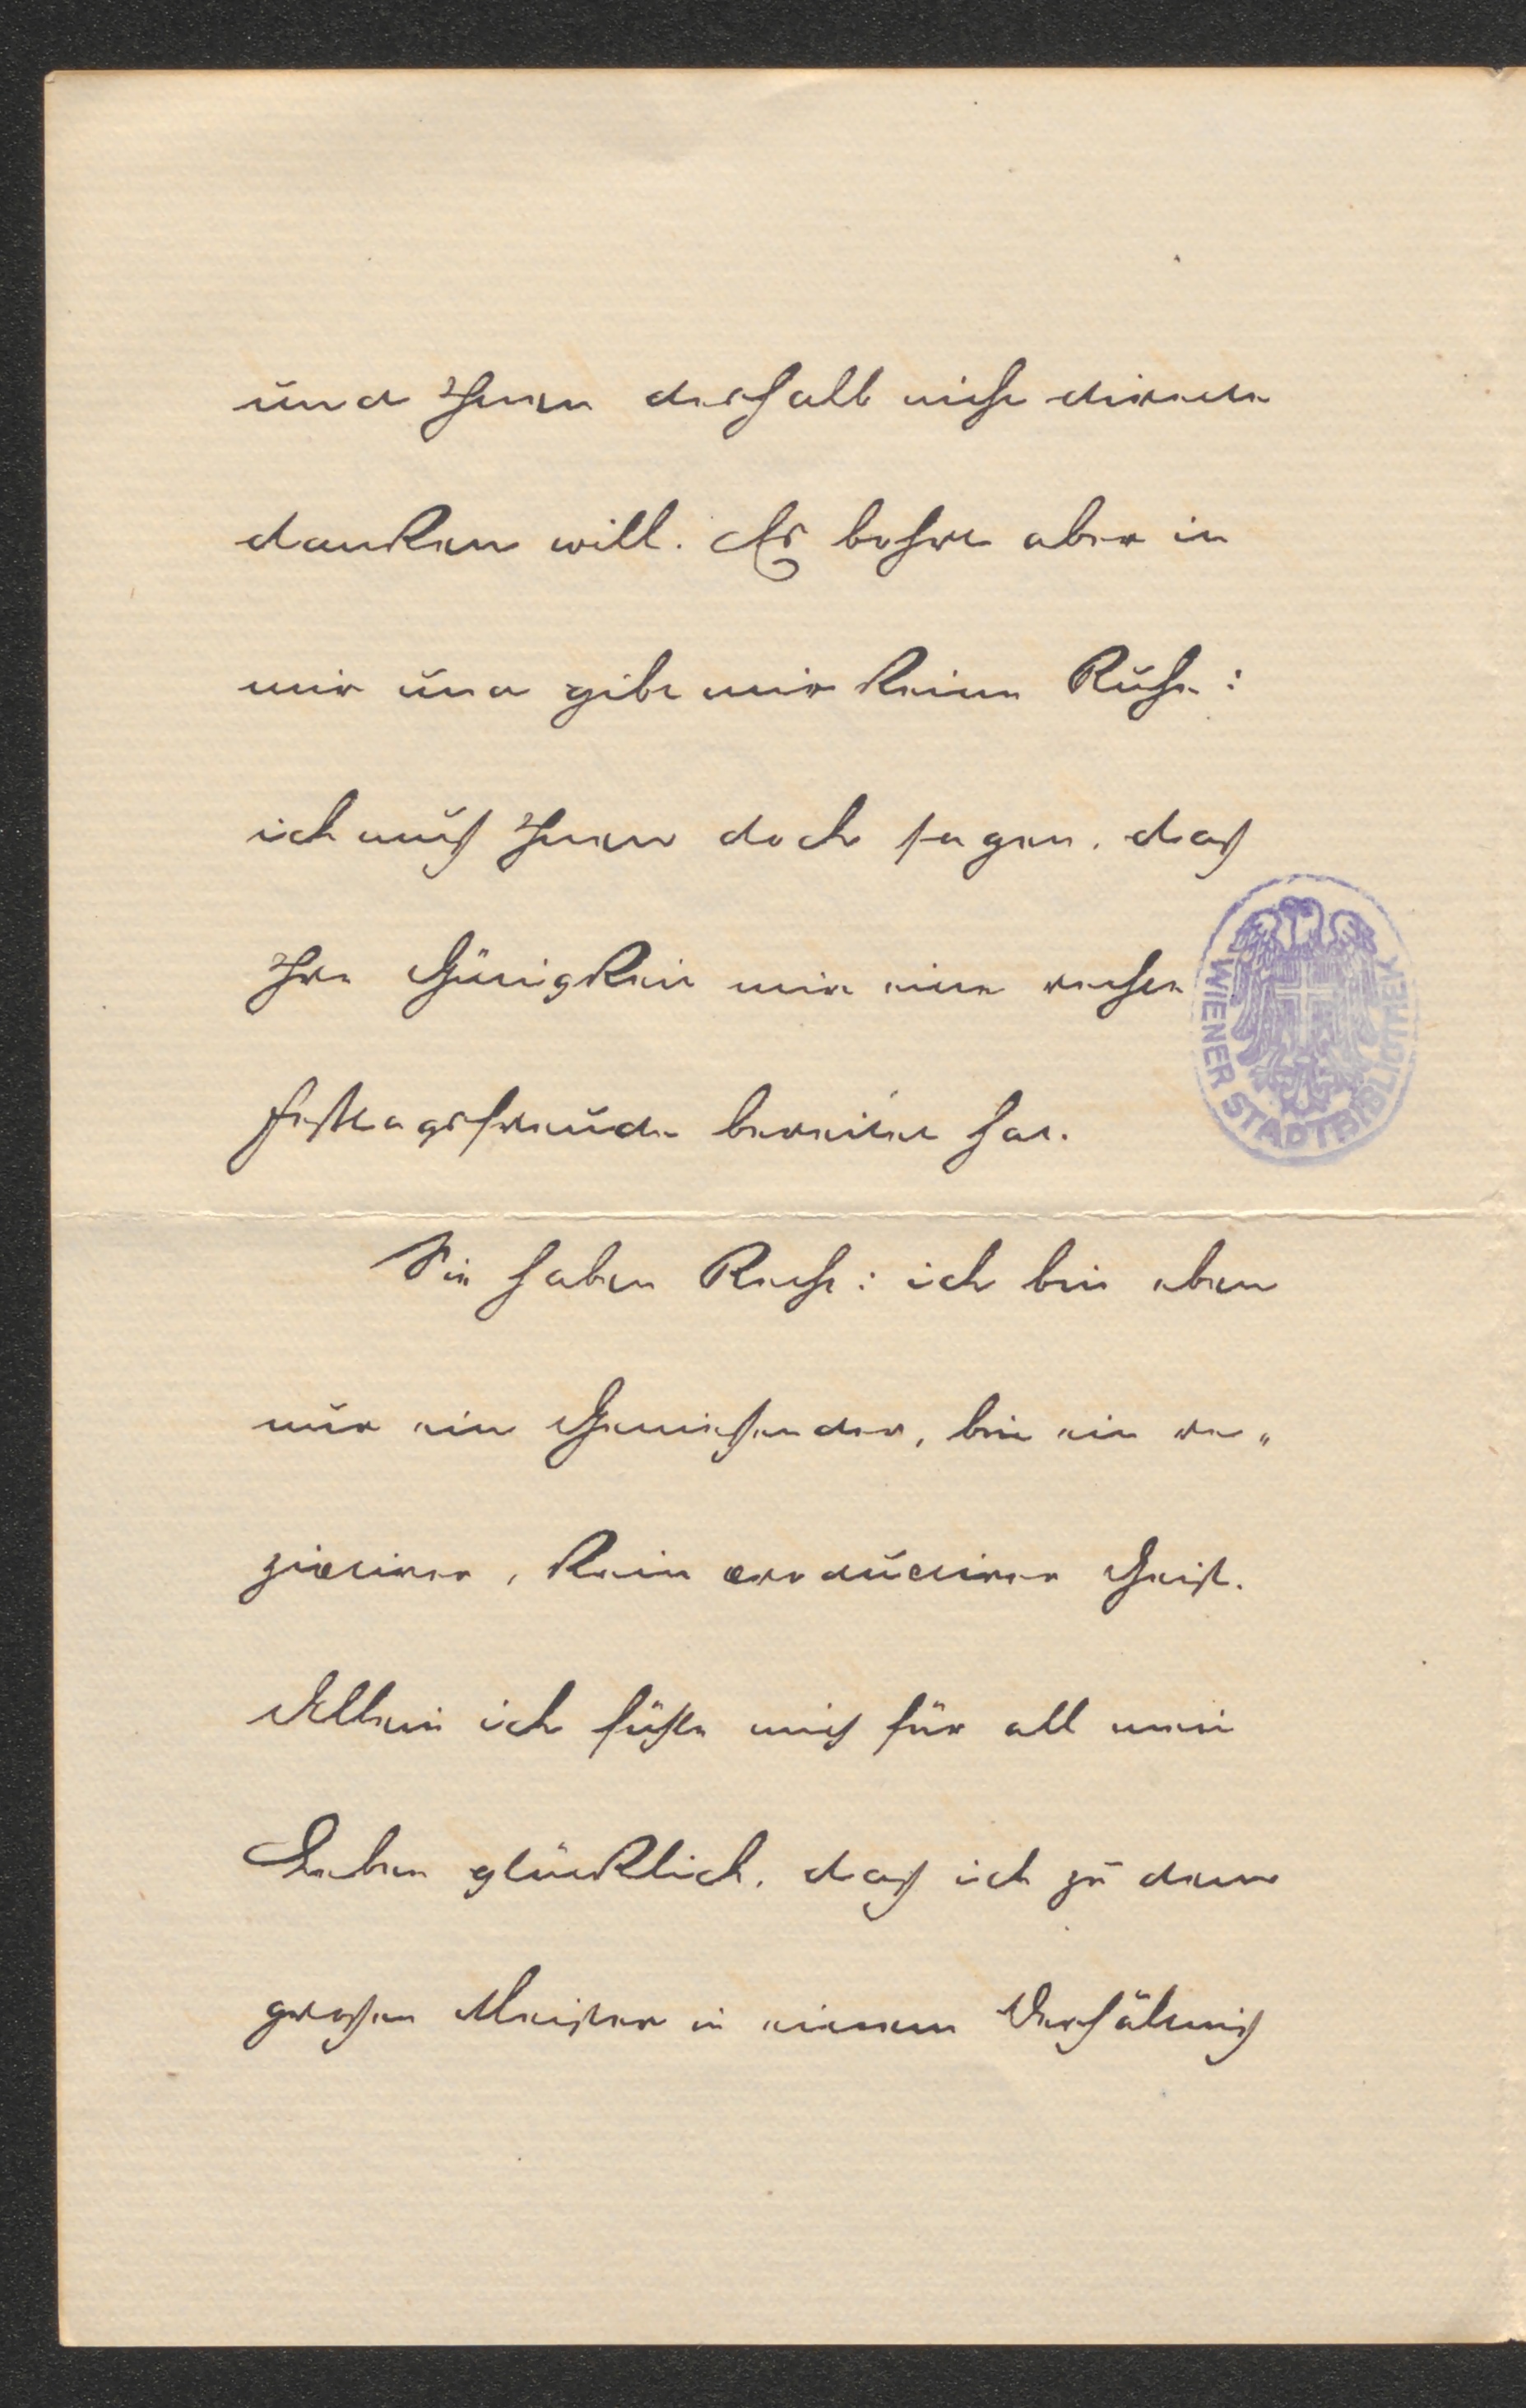 und Ihnen deshalb nicht direkte
danken will. Es bohrt aber in
mir und gibt mir keine Ruhe:
ich muß Ihnen doch sagen, daß
Ihre Gütigkeit mir eine rechte
Festtagsfreude bereitet hat.
Sie haben Recht: ich bin eben
nur ein Genießender, bin ein re„
zeptiver, kein productiver Geist.
Allein ich fühle mich für all mein
Leben glücklich, daß ich zu dem
großen Meister in einem Verhältniß
WIENER STADTBIBLIOTHEK